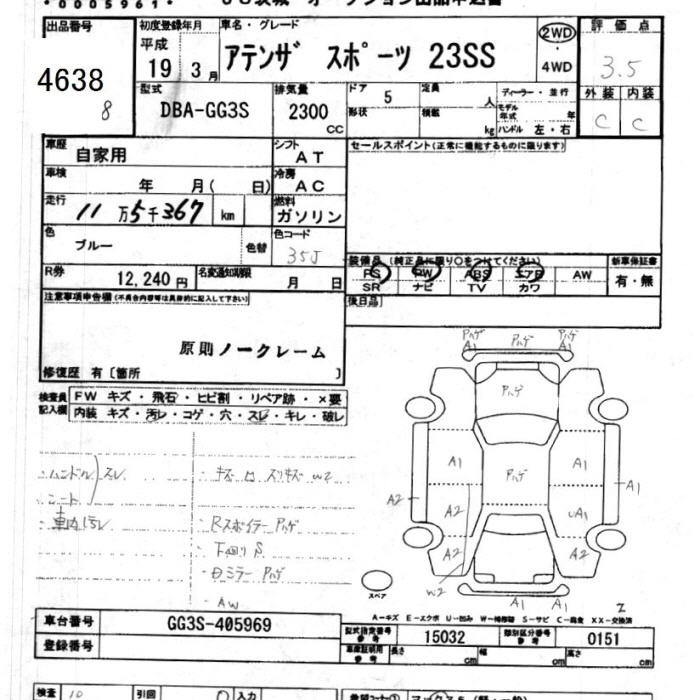 ・0005961・
出品番号
4638
8
初度登録年月
平成
19 3月
車名・グレード
アテンザ スポーツ 23SS
2WD
・
4WD
評価点
3.5
外装 内装
C C
型式
DBA-GG3S
排気量
2300
CC
ドア 5
形状
定員 人
積載 kg
ディーラー・並行
モデル年式 年
ハンドル 左・右
車歴
自家用
シフト
AT
セールスポイント(正常に機能するものに限ります)
車検
年 月( 日)
冷房
AC
走行
11万5千367 km
燃料
ガソリン
色
ブルー
色替
色コード
35J
装備品 (純正品に限り○をつけてください)
PS PW ABS エアB AW
SR ナビ TV カワ
新車保証書
有・無
R券
12,240円
名変通知期限
月 日
後日品
注意事項申告欄(不具合内容等は具体的に記入して下さい)
原則ノークレーム
修復歴 有〔箇所 〕
検査員記入欄
FW キズ・飛石・ヒビ割・リペア跡・×要
内装 キズ・汚レ・コゲ・穴・スレ・キレ・破レ
・ハンドル スレ
・シート
・車内汚レ
・キズ凹スリキズW2
・Rスポイラー Pハゲ
・下回りS
・ミラー Pハゲ
・AW
Pハゲ Pハゲ Pハゲ
A1 A1
Pハゲ
A1 Pハゲ A1
A2 A1
A2 UA1
A2 A2
W2
A1 A1
スペア
Z
A-キズ E-エクボ U-凹み W-補修跡 S-サビ C-腐食 XX-交換済
車台番号
GG3S-405969
登録番号
型式指定番号
参考
15032
類別区分番号
参考
0151
車庫証明用
参考
長さ cm
幅 cm
高さ cm
検査 10
引回
入力